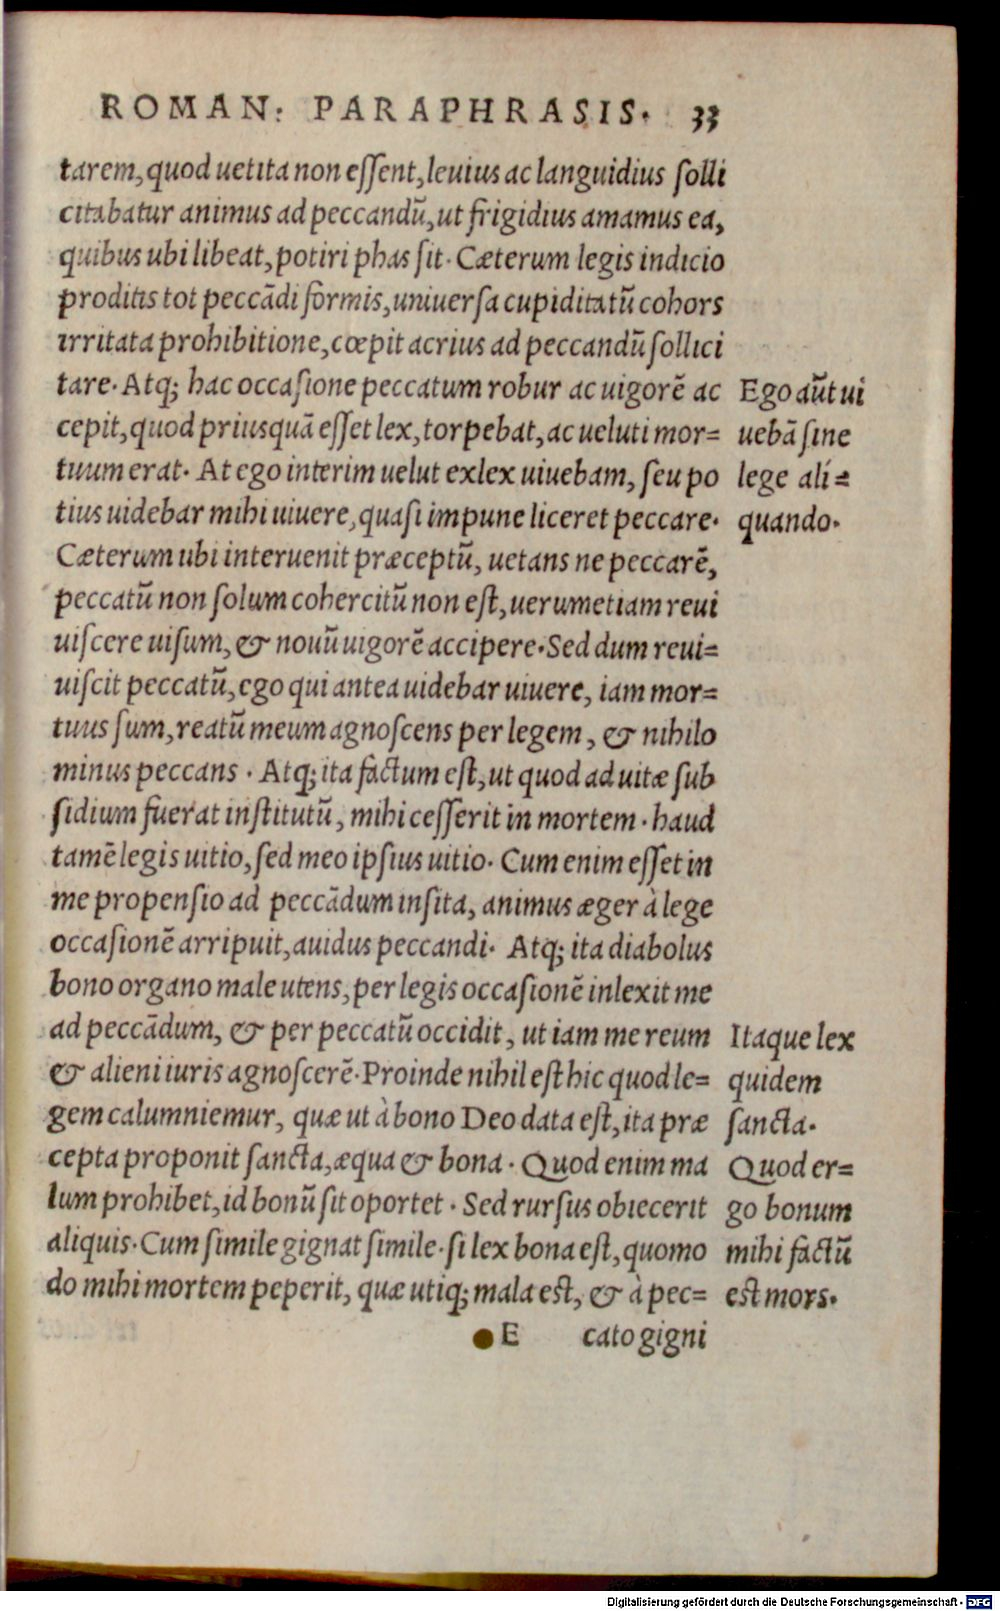 ROMAN: PARAPHRASIS. 33
tarem, quod uetita non eſſent, leuius ac languidius ſolli
citabatur animus ad peccandũ, ut frigidius amamus ea,
quibus ubi libeat, potiri phas ſit. Cæterum legis indicio
proditis tot peccãdi formis, uniuerſa cupiditatũ cohors
irritata prohibitione, cœpit acrius ad peccandũ ſollici
tare. Atq; hac occaſione peccatum robur ac uigorẽ ac
cepit, quod priusquã eſſet lex, torpebat, ac ueluti mor=
tuum erat. At ego interim uelut exlex uiuebam, ſeu po
tius uidebar mihi uiuere, quaſi impune liceret peccare.
Cæterum ubi interuenit præceptũ, uetans ne peccarẽ,
peccatũ non ſolum cohercitũ non eſt, uerumetiam reui
uiſcere uiſum, & nouũ uigorẽ accipere. Sed dum reui=
uiſcit peccatũ, ego qui antea uidebar uiuere, iam mor=
tuus ſum, reatũ meum agnoſcens per legem, & nihilo
minus peccans. Atq; ita factum eſt, ut quod ad uitæ ſub
ſidium fuerat inſtitutũ, mihi ceſſerit in mortem. haud
tamẽ legis uitio, ſed meo ipſius uitio. Cum enim eſſet in
me propenſio ad peccãdum inſita, animus æger à lege
occaſionẽ arripuit, auidus peccandi. Atq; ita diabolus
bono organo male utens, per legis occaſionẽ inlexit me
ad peccãdum, & per peccatũ occidit, ut iam me reum
& alieni iuris agnoſcerẽ. Proinde nihil eſt hic quod le=
gem calumniemur, quæ ut à bono Deo data eſt, ita præ
cepta proponit ſancta, æqua & bona. Quod enim ma
lum prohibet, id bonũ ſit oportet. Sed rurſus obiecerit
aliquis. Cum ſimile gignat ſimile. ſi lex bona eſt, quomo
do mihi mortem peperit, quæ utiq; mala eſt, & à pec=
E cato gigni
Ego aũt ui
uebã ſine
lege ali=
quando.
Itaque lex
quidem
ſancta.
Quod er=
go bonum
mihi factũ
eſt mors.
Digitalisierung gefördert durch die Deutsche Forschungsgemeinschaft - DFG